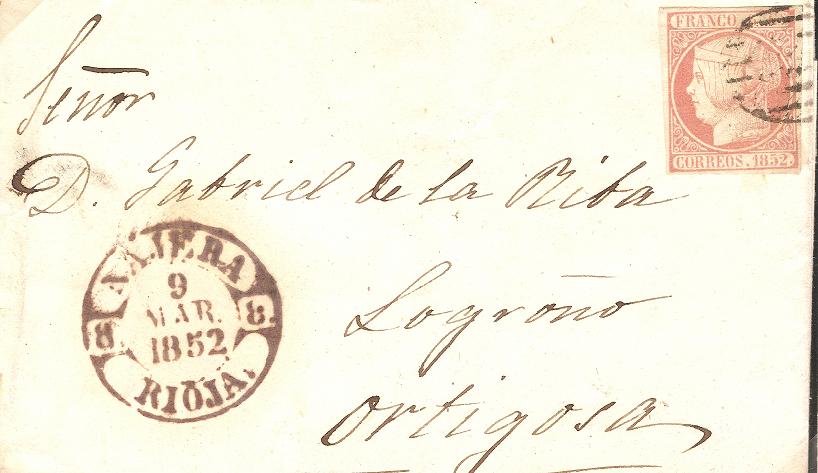 FRANCO
CORREOS. 1852.
Señor
D. Gabriel de la Riba
Logroño
Ortigosa
NAJERA
9
MAR.
1852
RIOJA.
8
8.